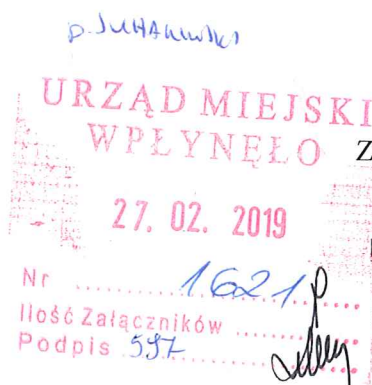 URZĄD MIEJSKI
WPŁYNĘŁO Z
27. 02. 2019
Nr 1621
Ilość Załączników
Podpis 597